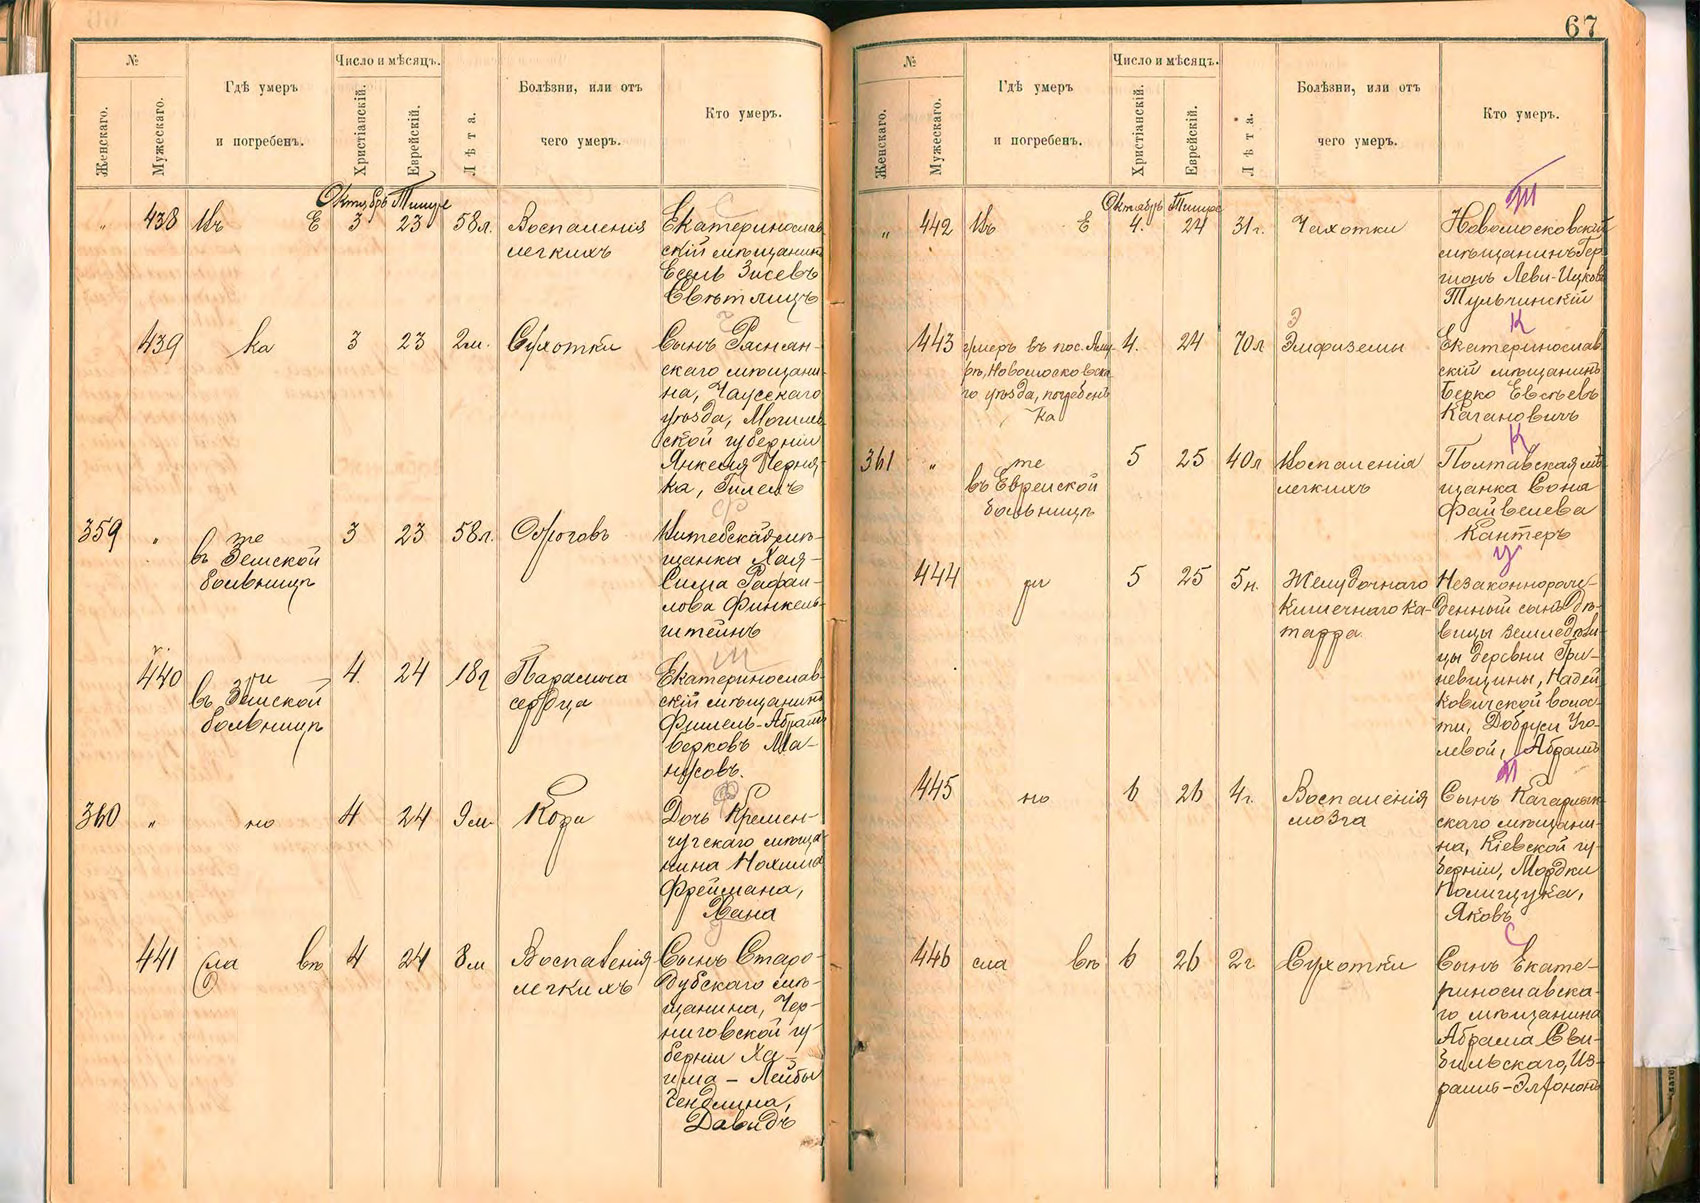 №
Число и мѣсяцъ.
Женскаго.
Мужескаго.
Гдѣ умеръ
и погребенъ.
Христіанскій.
Еврейскій.
Лѣта.
Болѣзни, или отъ
чего умеръ.
Кто умеръ.
Октябрь
438
Въ
Е
3
23
58 л.
Воспаленія
легкихъ
Екатеринослав
скій мѣщанинъ
Есель Зисевъ
Свѣтлицъ
439
ка
3
23
2 м.
Сухотки
Сынъ Раснян-
скаго мѣщани-
на, Чаусскаго
уѣзда, Могилев
ской губерніи
Янкеля Черня-
ка, Гилелъ
359
"
те
въ Земской
больницѣ
3
23
58 л.
Ожоговъ
Витебская мѣ-
щанка Хая-
Сима Рафаи-
лова Финкель-
штейнъ
440
ри
въ Земской
больницѣ
4
24
18 л
Паралича
сердца
Екатеринослав-
скій мѣщанинъ
Фишель-Абрамъ
Берковъ Ма-
нусовъ.
360
"
но
4
24
9 м
Кори
Дочь Кремен-
чугскаго мѣща
нина Нохима
Фреймана,
Хана
441
сла
вѣ
4
24
8 м
Воспаленія
легкихъ
Сынъ Старо-
дубскаго мѣ-
щанина, Чер-
ниговской гу-
берніи Ха-
има - Лейбы
Гендлина,
Давидъ
67
№
Число и мѣсяцъ.
Женскаго.
Мужескаго.
Гдѣ умеръ
и погребенъ.
Христіанскій.
Еврейскій.
Лѣта.
Болѣзни, или отъ
чего умеръ.
Кто умеръ.
Октябрь
"
442
Въ
Е
4.
24
31 г.
Чахотки
Т
Новомосковскій
мѣщанинъ Гер-
шонъ Леви-Ицковъ
Тульчинскій
443
умеръ въ пос. Аму-
рѣ, Новомосковска
го уѣзда, погребенъ
ка
4.
24
70 л
Э
Эмфиземы
К
Екатеринослав
скій мѣщанинъ
Берко Евсѣевъ
Кагановичъ
361
"
те
въ Еврейской
больницѣ
5
25
40 л
Воспаленія
легкихъ
К
Полтавская мѣ
щанка Соня
Файвелева
Кантеръ
444
ри
5
25
5 н.
Желудочнаго
кишечнаго ка-
тарра.
У
Незаконнорож-
денный сынъ дѣ-
вицы земледѣли-
цы деревни Гри-
невщины,
ковичской волос-
ти, Добруси Уго-
левой, Абрамъ
445
но
6
26
4 г.
Воспаленія
мозга
П
Сынъ Кагарлык
скаго мѣщани-
на, Кіевской гу-
берніи, Мордки
Полищука,
Яковъ
446
сла
вѣ
6
26
2 г
Сухотки
С
Сынъ Екате-
ринославска-
го мѣщанина
Абрама Сви-
бильскаго, Из-
раиль-Элхононъ